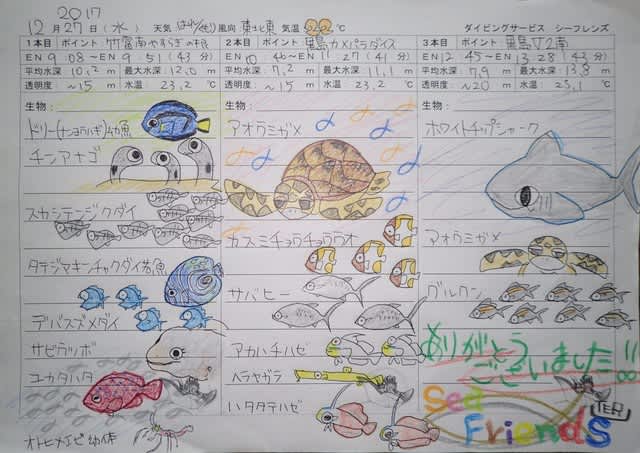 2017
12月27日(水) 天気 はれ 風向 東北東 気温 22℃ ダイビングサービス シーフレンズ
1本目 ポイント 竹富南やすらぎの根
EN 9 08～EX 9 51(43分)
平均水深 10.2m 最大水深 12.0m
透明度 ～15m 水温 23.2℃
生物:
ドリー(ナンヨウハギ)幼魚
チンアナゴ
スカシテンジクダイ
タテジマキンチャクダイ若魚
デバスズメダイ
サビウツボ
ユカタハタ
オトヒメエビ幼体
2本目 ポイント 黒島カメパラダイス
EN 10 46～EX 11 27(41分)
平均水深 7.2m 最大水深 11.1m
透明度 ～15m 水温 23.2℃
生物:
アオウミガメ
カスミチョウチョウウオ
サバヒー
アカハチハゼ
ヘラヤガラ
ハタタテハゼ
3本目 ポイント 黒島V2南
EN 12 45～EX 13 28(43分)
平均水深 7.9m 最大水深 13.8m
透明度 ～20m 水温 23.1℃
生物:
ホワイトチップシャーク
アオウミガメ
グルクン
ありがとう
ございました!!
Sea
Friends